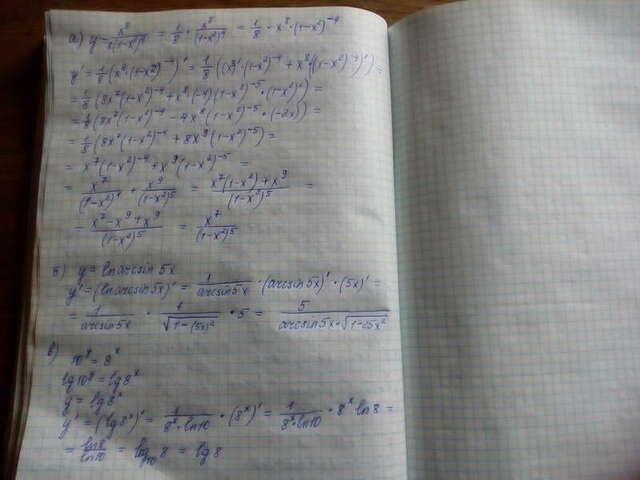 а) y = x⁸/8(1-x²)⁴ = 1/8 · x⁸/(1-x²)⁴ = 1/8 · x⁸ · (1-x²)⁻⁴
y' = 1/8 (x⁸(1-x²)⁻⁴)' = 1/8 ((x⁸)'(1-x²)⁻⁴ + x⁸·((1-x²)⁻⁴)') =
= 1/8 (8x⁷(1-x²)⁻⁴ + x⁸·(-4)(1-x²)⁻⁵·(1-x²)') =
= 1/8 (8x⁷(1-x²)⁻⁴ - 4x⁸(1-x²)⁻⁵·(-2x)) =
= 1/8 (8x⁷(1-x²)⁻⁴ + 8x⁹(1-x²)⁻⁵) =
= x⁷(1-x²)⁻⁴ + x⁹(1-x²)⁻⁵ =
= x⁷/(1-x²)⁴ + x⁹/(1-x²)⁵ = x⁷(1-x²)+x⁹/(1-x²)⁵ =
= x⁷-x⁹+x⁹/(1-x²)⁵ = x⁷/(1-x²)⁵
б) y = ln arcsin 5x
y' = (ln arcsin 5x)' = 1/arcsin 5x · (arcsin 5x)' · (5x)' =
= 1/arcsin 5x · 1/√1-(5x)² · 5 = 5/arcsin 5x · √1-25x²
в) 10ʸ = 8ˣ
lg 10ʸ = lg 8ˣ
y = lg 8ˣ
y' = (lg 8ˣ)' = 1/8ˣ·ln10 · (8ˣ)' = 1/8ˣ·ln10 · 8ˣ ln 8 =
= ln8/ln10 = log₁₀ 8 = lg 8